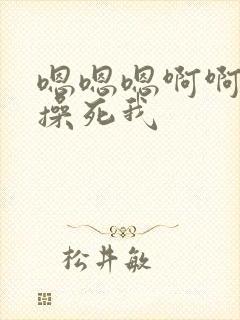 嗯嗯嗯啊啊
操死我
松井敏